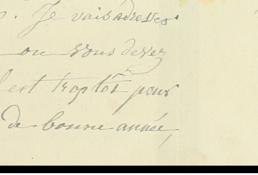 . Je vais adresser
ou vous devez
est trop tôt pour
de bonne année,